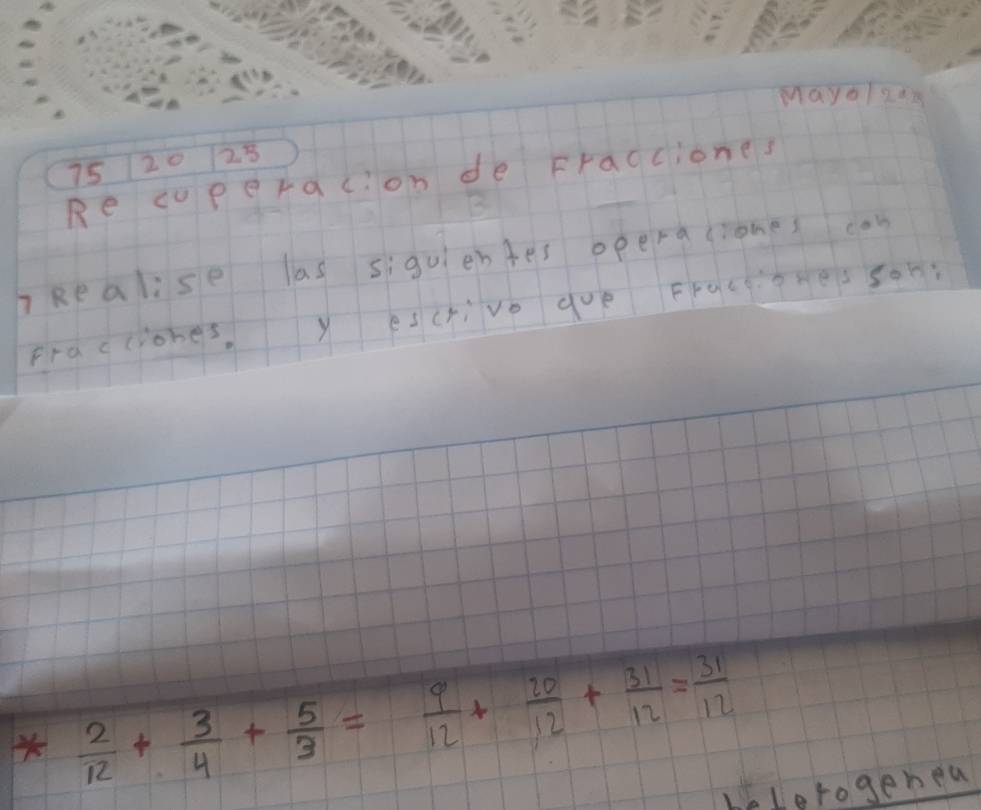 Mayo/202
15 20 23
Recuperacion de Fracciones
1 Realise las siguientes operaciones con
Fracciones. y escrivo que Fracciones son:
* 2/12 + 3/4 + 5/3 = 9/12 + 20/12 + 31/12 = 31/12
heterogenea